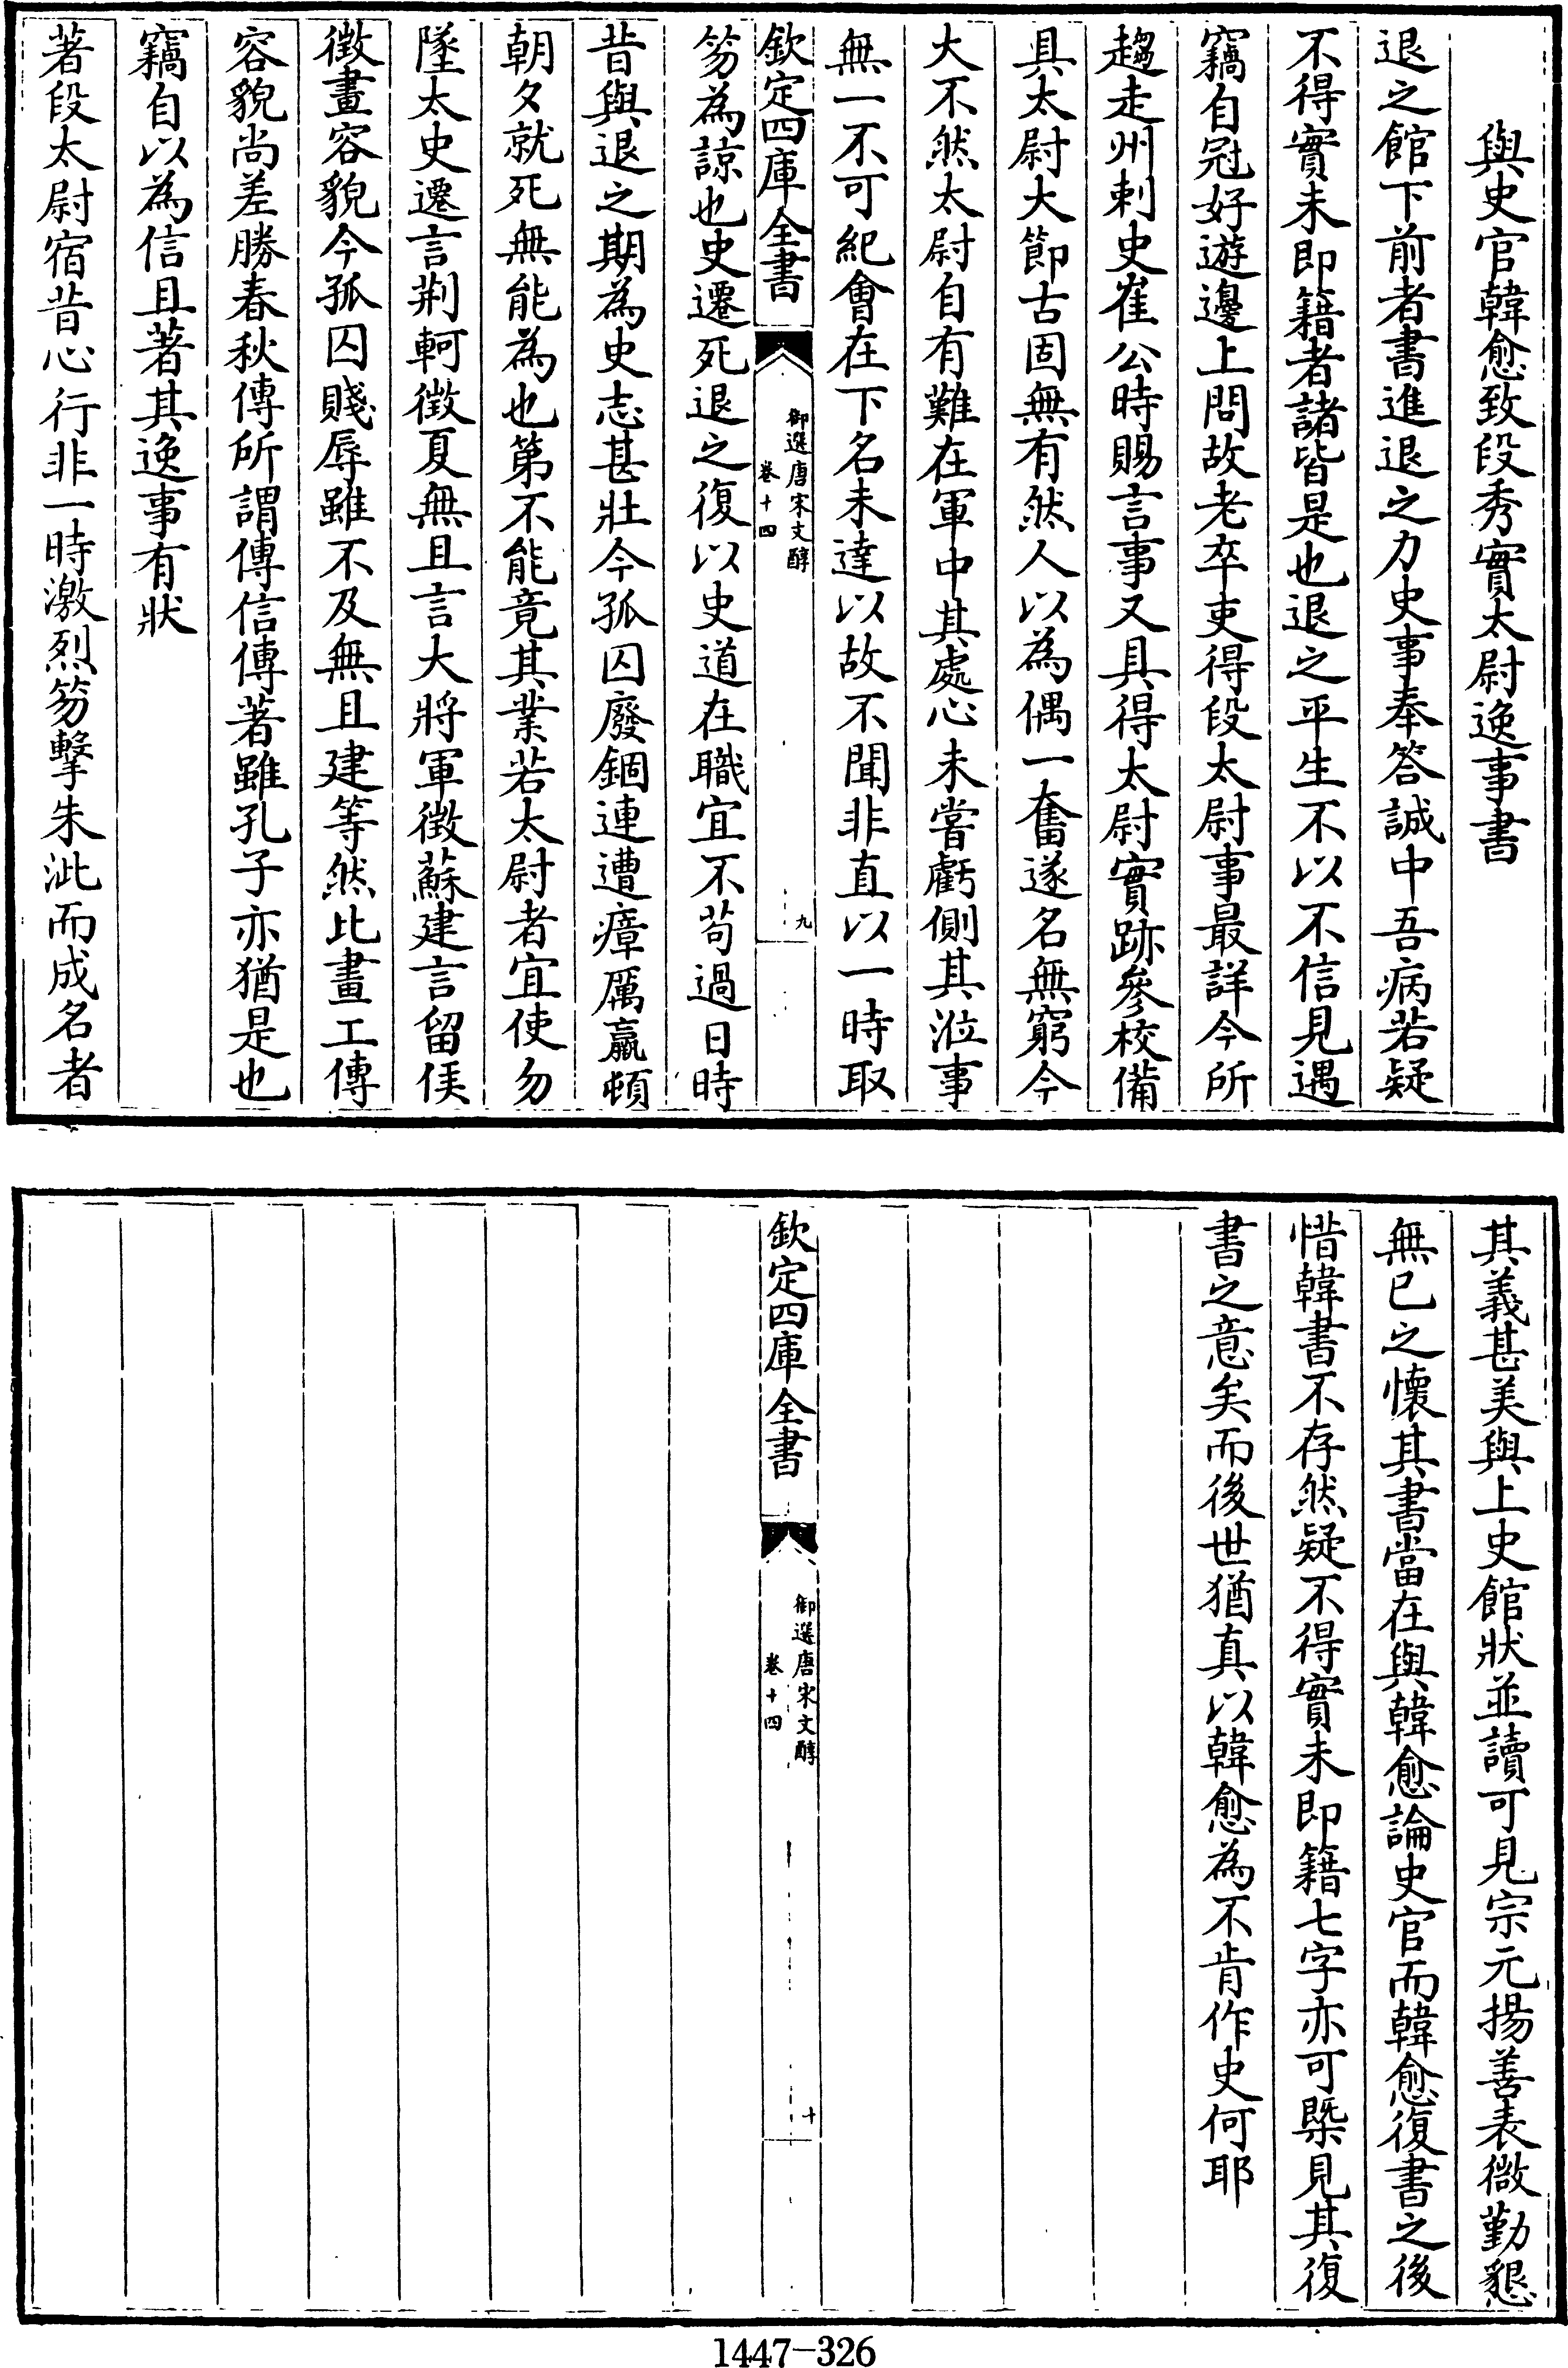 與史官韓愈致段秀實太尉逸事書
退之館下前者書進退之力史事奉答誠中吾病若疑
不得實未即籍者諸皆是也退之平生不以不信見遇
竊自冠好遊邊上問故老卒吏得段太尉事最詳今所
趨走州刺史崔公時賜言事又具得太尉實跡參校備
具太尉大節古固無有然人以為偶一奮遂名無窮今
大不然太尉自有難在軍中其處心未嘗虧側其涖事
無一不可紀會在下名未達以故不聞非直以一時取
欽定四庫全書
御選唐宋文醇
卷十四
九
笏為諒也史遷死退之復以史道在職宜不茍過日時
昔與退之期為史志甚壯今孤囚廢錮連遭瘴厲羸頓
朝夕就死無能為也第不能竟其業若太尉者宜使勿
墜太史遷言荆軻徵夏無且言大將軍徵蘇建言留侯
徵畫容貌今孤囚賤辱雖不及無且建等然比畫工傳
容貌尚差勝春秋傳所謂傳信傳著雖孔子亦猶是也
竊自以為信且著其逸事有狀
著段太尉宿昔心行非一時激烈笏擊朱泚而成名者
其義甚美與上史館狀並讀可見宗元揚善表微勤懇
無已之懷其書當在與韓愈論史官而韓愈復書之後
惜韓書不存然疑不得實未即籍七字亦可槩見其復
書之意矣而後世猶真以韓愈為不肯作史何耶
欽定四庫全書
御選唐宋文醇
卷十四
十
1447-326